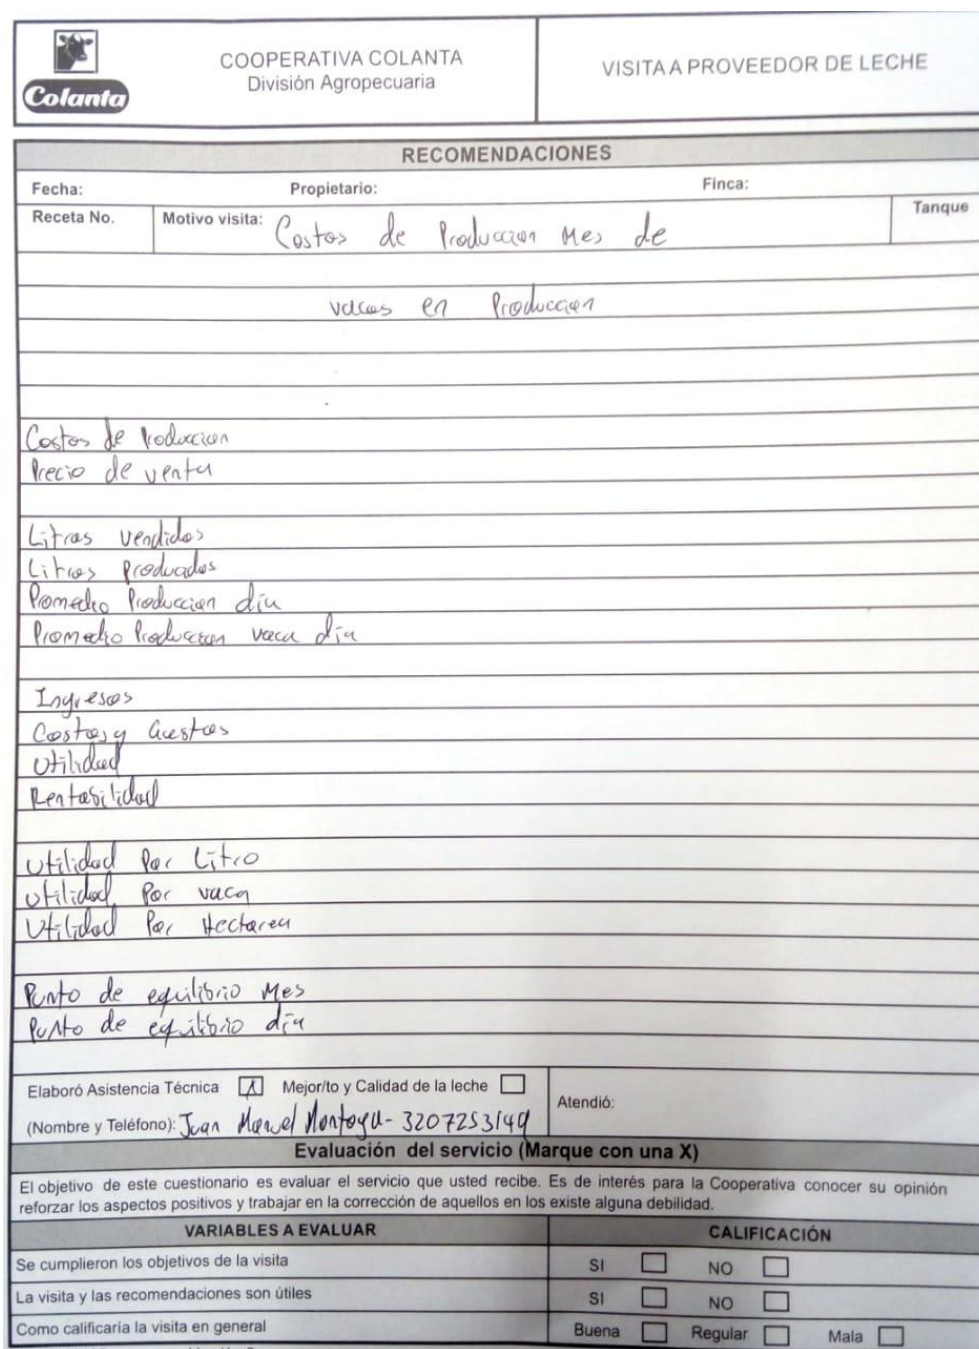 Colanta
COOPERATIVA COLANTA
División Agropecuaria
VISITA A PROVEEDOR DE LECHE
RECOMENDACIONES
Fecha: Propietario: Finca:
Receta No. Motivo visita: Costos de Produccion Mes de Tanque
vacas en Produccion
Costos de Produccion
Precio de venta
Litros vendidos
Litros producidos
Promedio Produccion día
Promedio Produccion vaca día
Ingresos
Costos y Gastos
Utilidad
Rentabilidad
Utilidad Por Litro
Utilidad Por vaca
Utilidad Por Hectarea
Punto de equilibrio Mes
Punto de equilibrio día
Elaboró Asistencia Técnica X Mejor/to y Calidad de la leche
(Nombre y Teléfono): Juan Manuel Montoya - 3207253149
Atendió:
Evaluación del servicio (Marque con una X)
El objetivo de este cuestionario es evaluar el servicio que usted recibe. Es de interés para la Cooperativa conocer su opinión
reforzar los aspectos positivos y trabajar en la corrección de aquellos en los existe alguna debilidad.
VARIABLES A EVALUAR CALIFICACIÓN
Se cumplieron los objetivos de la visita SI NO
La visita y las recomendaciones son útiles SI NO
Como calificaría la visita en general Buena Regular Mala